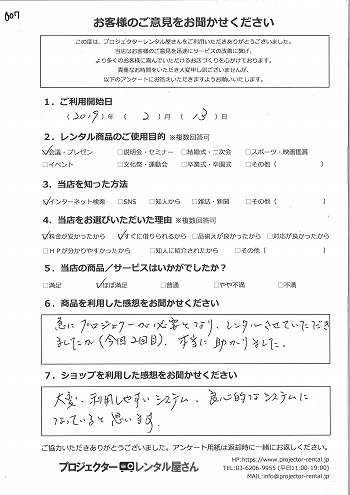 007
お客様のご意見をお聞かせください
この度は、プロジェクターレンタル屋さんをご利用いただきありがとうございました。
当店はお客様のご意見を迅速にサービスの改善に繋げ、
より多くのお客様に喜んでいただけるお店づくりを心がけております。
貴重なお時間をいただき大変申し訳ございませんが、
以下のアンケートにお答えいただきますようお願いいたします。
1．ご利用開始日
（2019）年（ 2 ）月（ 13 ）日
2．レンタル商品のご使用目的 ※複数回答可
☑会議・プレゼン □説明会・セミナー □結婚式・二次会 □スポーツ・映画鑑賞
□イベント □文化祭・運動会 □卒業式・卒園式 □その他（ ）
3．当店を知った方法
☑インターネット検索 □SNS □知人から □雑誌・新聞 □その他（ ）
4．当店をお選びいただいた理由 ※複数回答可
☑料金が安かったから ☑すぐに借りられるから □品揃えが良かったから □対応が良かったから
□ＨＰが分かりやすかったから □知人に紹介されたから □その他（ ）
5．当店の商品／サービスはいかがでしたか？
□満足 ☑ほぼ満足 □普通 □やや不満 □不満
6．商品を利用した感想をお聞かせください
急にプロジェクターが必要となり、レンタルさせていただき
ましたが（今回2回目）、本当に助かりました。
7．ショップを利用した感想をお聞かせください
大変、利用しやすいシステム、良心的なシステムに
なっていると思います。
ご協力いただきありがとうございました。アンケート用紙は返却時に一緒にお返しください。
プロジェクターレンタル屋さん
HP:https://www.projector-rental.jp
TEL:03-6206-9955 (平日11:00-19:00)
MAIL:info@projector-rental.jp